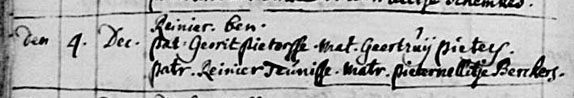 Reinier. ben.
den 4. Dec. pat. Gerrit pietersse. mat. Geertruij pieters.
patr. Reinier Teunisse. matr. pieternelletje Berckers.